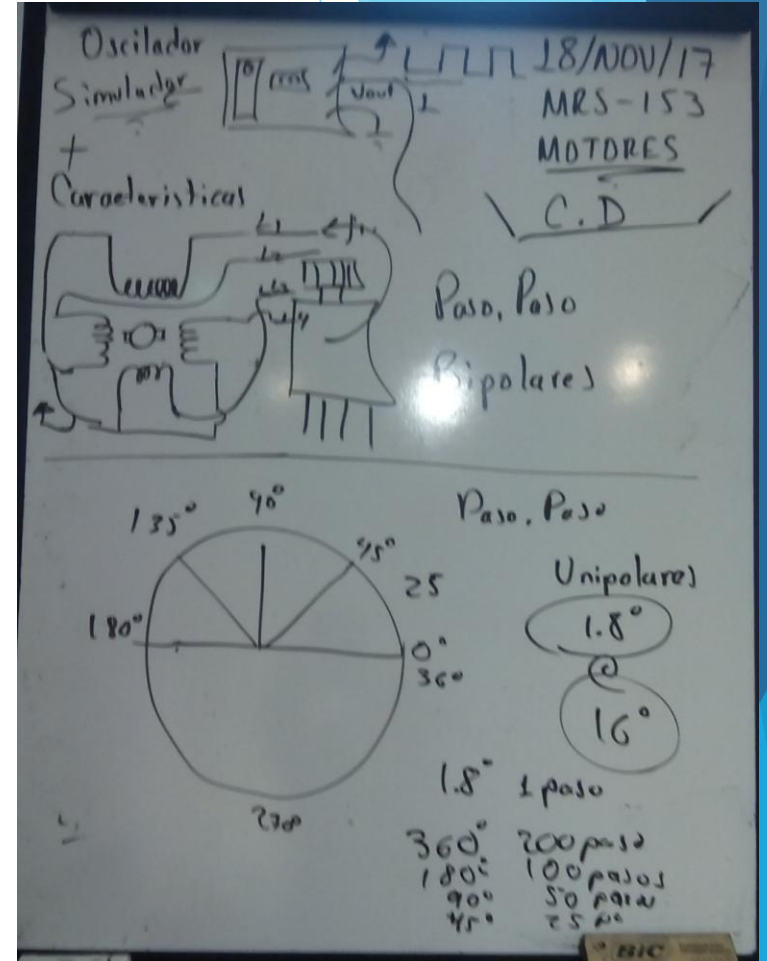 Oscilador
Simulador
+
Caracteristicas
Vout
1
18/NOV/17
MRS-153
MOTORES
C.D
L1
L2
Paso, Paso
Bipolares
135°
90°
45°
25
180°
0°
360
270
Paso, Paso
Unipolares
1.8°
@
16°
1.8° 1 paso
360° 200 paso
180° 100 pasos
90° 50 pasos
45° 25
BIC